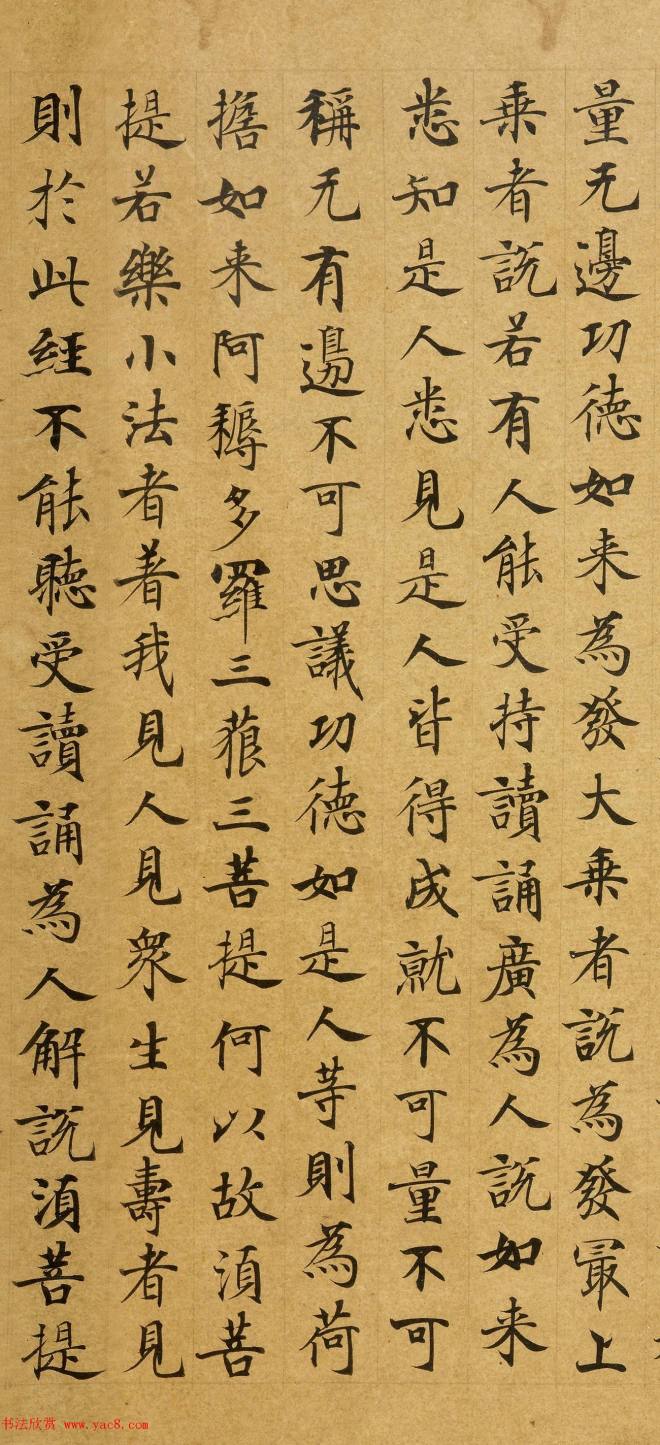 量无邊功德如来為發大乗者説為發冣上
乗者説若有人能受持讀誦廣為人説如来
悉知是人悉見是人皆得成就不可量不可
稱无有邊不可思議功德如是人等則為荷
擔如来阿耨多羅三藐三菩提何以故湏菩
提若樂小法者着我見人見衆生見壽者見
則於此經不能聽受讀誦為人解説湏菩提
书法欣赏 www.yac8.com